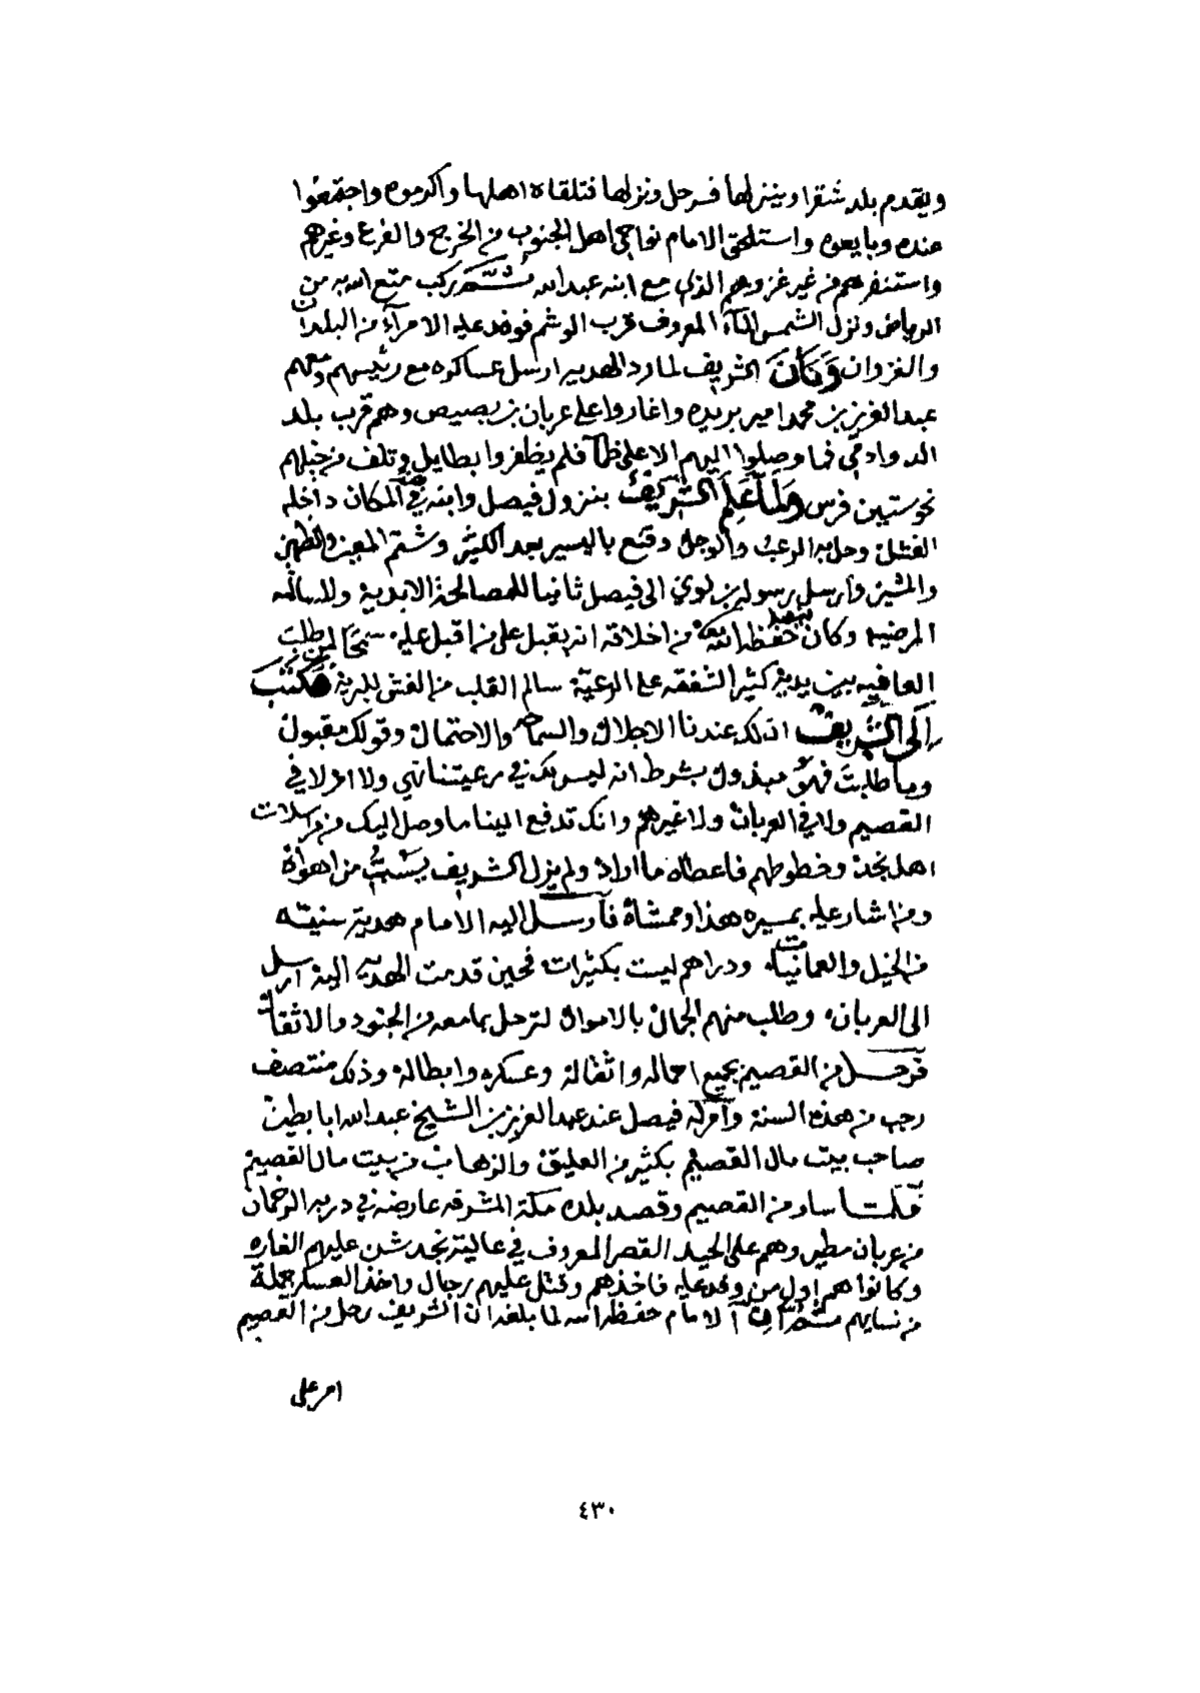 ويقدم بلد شقرا وينزلها فرحل ونزلها فتلقاه اهلها واكرموه واجتمعوا
عنده وبايعوه واستلحق الامام نواحي اهل الجنوب من الخرج والفرع وغيرهم
واستنفرهم من غير غزوهم الذي مع ابنه عبدالله ثم ركب متع الله به من
الرياض ونزل الشمس الماء المعروف قرب الوشم فوفد عليه الامرآء من البلدان
والغزوان وكان الشريف لما رد الهديه ارسل عساكره مع رئيسهم ومعهم
عبدالعزيز بن محمد امير بريده واغاروا على عربان بن بصيص وهم قرب بلد
الدوادمي فما وصلوا اليهم الا على ظمآ فلم يظفروا بطايل وتلف من خيلهم
نحو ستين فرس ولما علم الشريف بنزول فيصل وابنه في ذلك المكان داخله
الفشل وحل به الرعب والوجل وقنع باليسير بعد الكثير وشتم المعين والظهير
والمشير وأرسل رسوله بن لوي الى فيصل ثانيا للمصالحة الابدية والمسالمه
المرضيه وكان فيصل حفظه الله من اخلاقه انه يقبل على من اقبل عليه سمحا لمن طلب
العافيه بين يديه كثير الشفقه على الرعية سالم القلب من الغش للبرية فكتب
إلى الشريف ان لك عندنا الاجلال والسماح والاحتمال وقولك مقبول
وما طلبت فهو مبذول بشرط انه ليس لك في رعيتنا نهي ولا امر لا في
القصيم ولا في العربان ولا غيرهم وانك تدفع الينا ما وصل اليك من مراسلات
اهل نجد وخطوطهم فاعطاه ما اراد ولم يزل الشريف يسب من اهواه
ومن اشار عليه بمسيره هذا وممشاه فأرسل اليه الامام هدية سنيته
من الخيل والعمانيات ودراهم ليست بكثيرات فحين قدمت الهديه اليه ارسل
الى العربان وطلب منهم الجمال بالاموال لترحل بما معه من الجنود والاثقال
فرحل من القصيم بجميع احماله واثقاله وعسكره وابطاله وذلك منتصف
رجب من هذه السنة وأمر له فيصل عند عبدالعزيز بن الشيخ عبدالله ابا بطين
صاحب بيت مال القصيم بكثير من العليق والزهاب من بيت مال القصيم
فلما سار من القصيم وقصد بلده مكة المشرفه عارضه في دربه الرخمان
من عربان مطير وهم على الحيد القصر المعروف في عالية نجد شن عليهم الغاره
وكانوا هم اول من وفد عليه فاخذهم وقتل عليهم رجال واخذ العسكر جملة
من نسايهم ثم ان الامام حفظه الله لما بلغه ان الشريف رحل من القصيم
امر على
٤٣٠